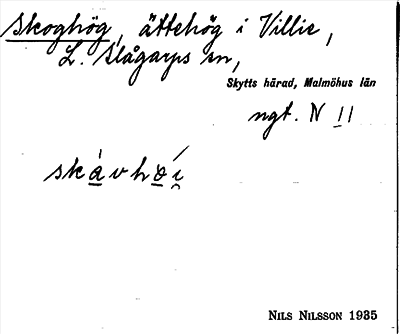 Skoghög, ättehög i Villie,
L. Slågarps sn,
Skytts härad, Malmöhus län
ngt. N 11
skavhöi
NILS NILSSON 1935